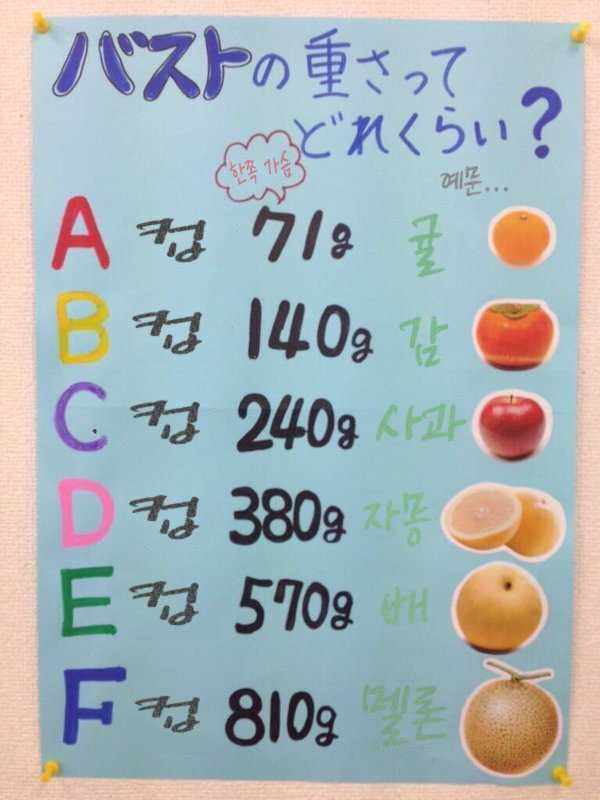 バストの重さって
どれくらい?
한쪽 가슴
예문...
A 컵 71g 귤
B 컵 140g 감
C 컵 240g 사과
D 컵 380g 자몽
E 컵 570g 배
F 컵 810g 멜론